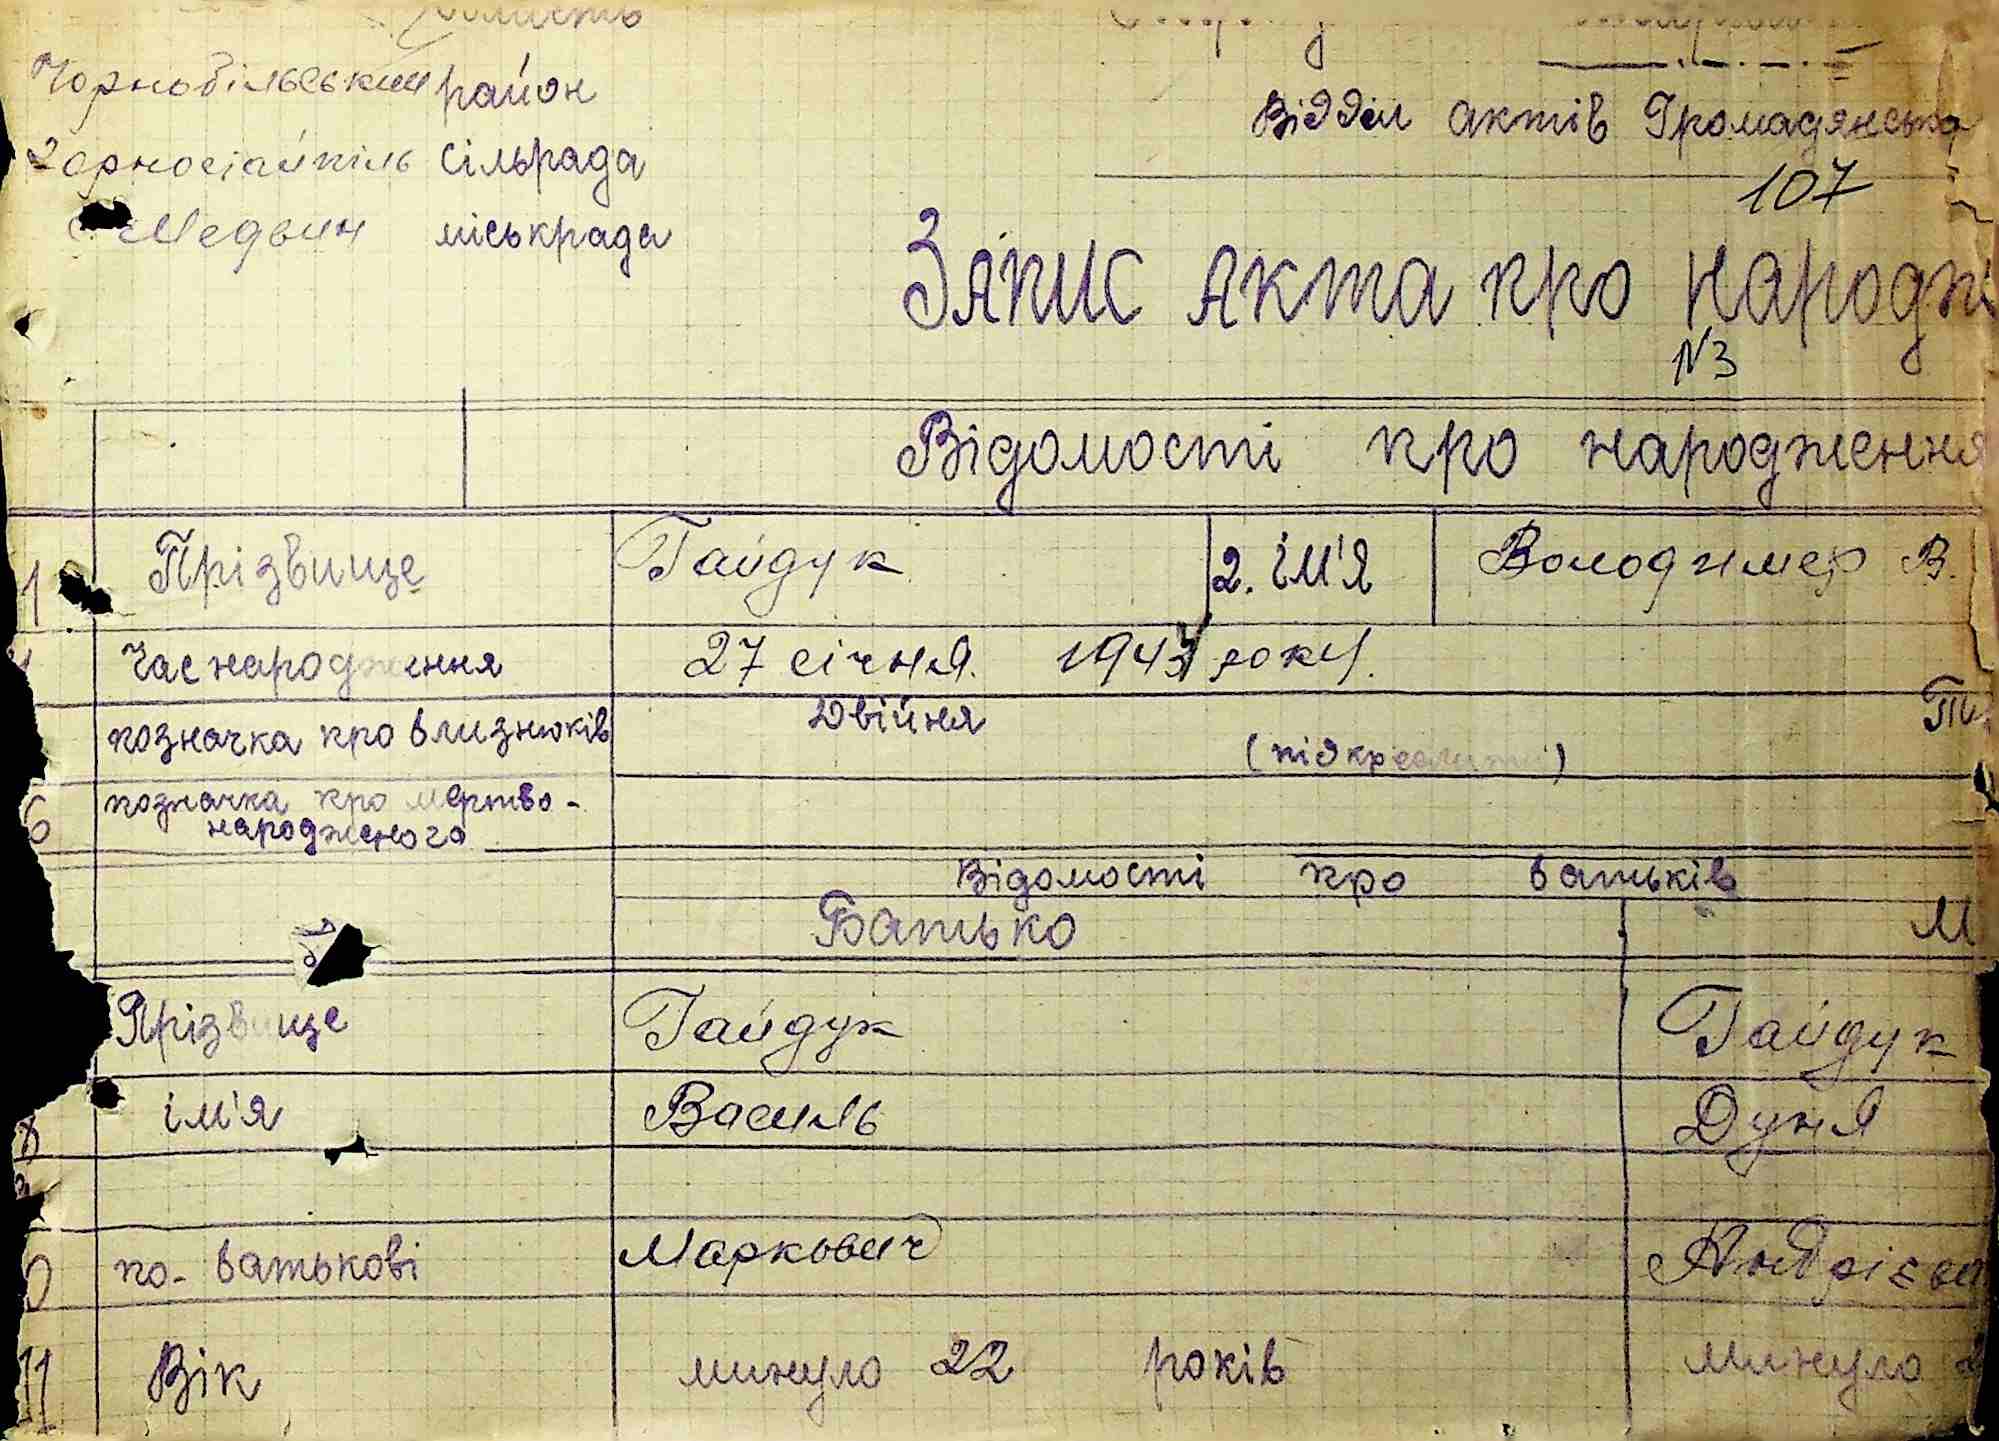 Чорнобільський район
Відділ актів Громадянська
сільрада
107
Медвин міськрада
Запис акта про народж
N3
Відомості про народження
1 Прізвище Гайдук 2. ім'я Володимер В.
Час народження 27 січня 1943 року.
позначка про близнюків Двійня
(підкреслити)
6 позначка про мертво-
народженого
Відомості про батьків
Батько М
Прізвище Гайдук Гайдук
8 ім'я Василь Дуня
по-батькові Маркович Андрієв
11 Вік минуло 22 років минуло